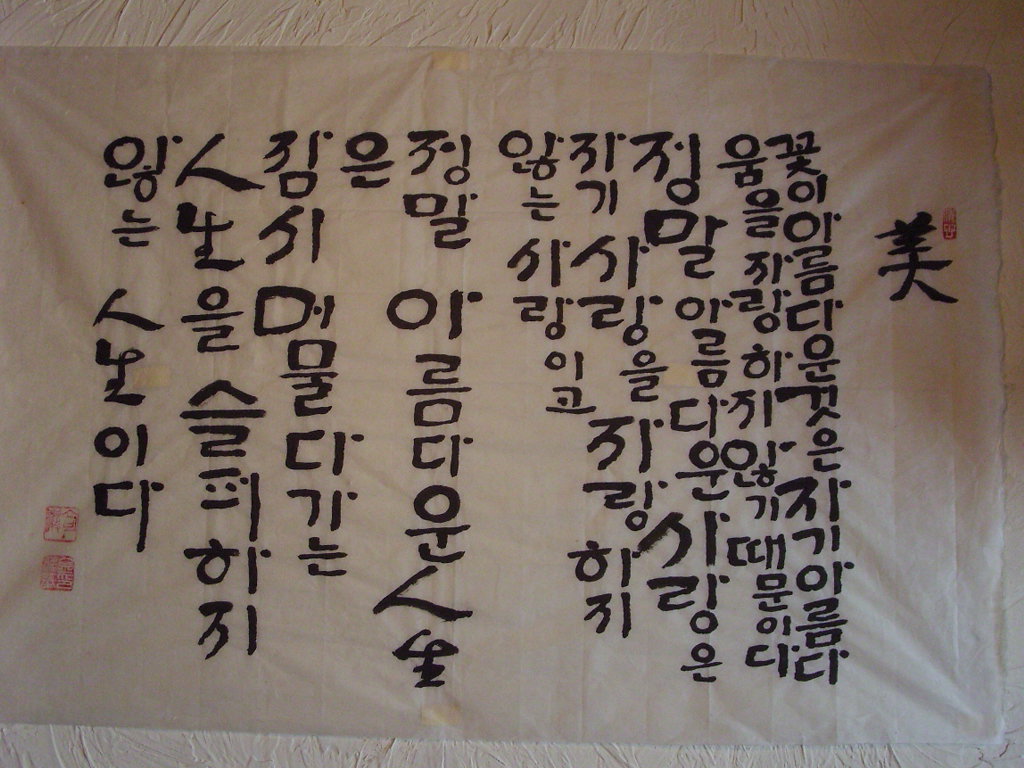 美
꽃이아름다운것은 자기아름다
움을 자랑하지 않기때문이다
정말 아름다운 사랑은
자기 사랑을 자랑하지
않는 사랑이고
정말 아름다운 人生
은
잠시 머물다가는
人生을 슬퍼하지
않는 人生이다